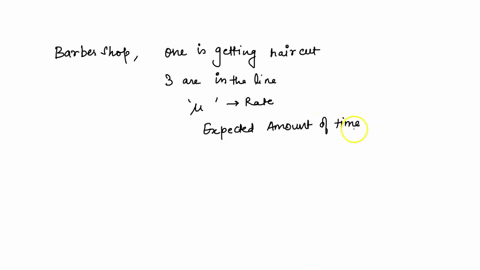 Barber Shop, One is getting haircut
3 are in the line
'μ' → Rate
Expected Amount of time